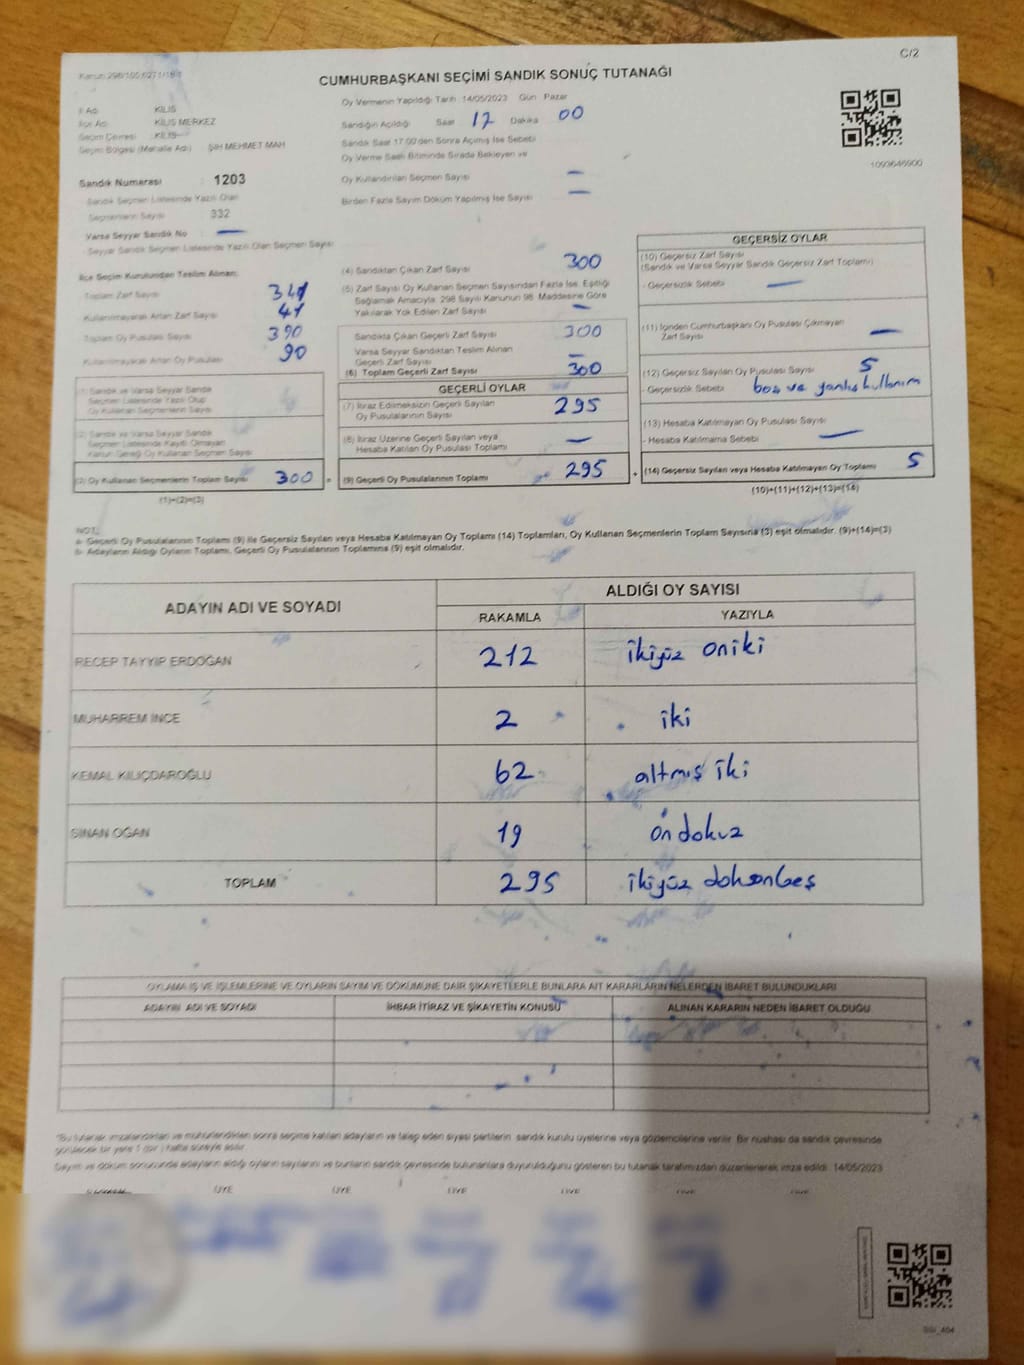 C/2
CUMHURBAŞKANI SEÇİMİ SANDIK SONUÇ TUTANAĞI
İl Adı : KİLİS
İlçe Adı : KİLİS MERKEZ
Seçim Çevresi : KİLİS
Seçim Bölgesi (Mahalle Adı) : ŞIH MEHMET MAH
Sandık Numarası : 1203
Sandık Seçmen Listesinde Yazılı Olan
Seçmenlerin Sayısı 332
Varsa Seyyar Sandık No : —
Seyyar Sandık Seçmen Listesinde Yazılı Olan Seçmen Sayısı
Oy Vermenin Yapıldığı Tarih : 14/05/2023 Gün : Pazar
Sandığın Açıldığı Saat 17 Dakika 00
Sandık Saat 17:00'den Sonra Açılmış İse Sebebi
Oy Verme Saati Bitiminde Sırada Bekleyen ve
Oy Kullandırılan Seçmen Sayısı —
Birden Fazla Sayım Döküm Yapılmış İse Sayısı —
1093646900
İlçe Seçim Kurulundan Teslim Alınan:
Toplam Zarf Sayısı 341
Kullanılmayarak Artan Zarf Sayısı 41
Toplam Oy Pusulası Sayısı 390
Kullanılmayarak Artan Oy Pusulası 90
(1) Sandık ve Varsa Seyyar Sandık
Seçmen Listesinde Yazılı Olup
Oy Kullanan Seçmenlerin Sayısı
(2) Sandık ve Varsa Seyyar Sandık
Seçmen Listesinde Kayıtlı Olmayan
Kanun Gereği Oy Kullanan Seçmen Sayısı
(3) Oy Kullanan Seçmenlerin Toplam Sayısı 300 =
(1)+(2)=(3)
(4) Sandıktan Çıkan Zarf Sayısı 300
(5) Zarf Sayısı Oy Kullanan Seçmen Sayısından Fazla İse, Eşitliği
Sağlamak Amacıyla, 298 Sayılı Kanunun 98. Maddesine Göre
Yakılarak Yok Edilen Zarf Sayısı —
Sandıkta Çıkan Geçerli Zarf Sayısı 300
Varsa Seyyar Sandıktan Teslim Alınan
Geçerli Zarf Sayısı —
(6) Toplam Geçerli Zarf Sayısı 300
GEÇERLİ OYLAR
(7) İtiraz Edilmeksizin Geçerli Sayılan
Oy Pusulalarının Sayısı 295
(8) İtiraz Üzerine Geçerli Sayılan veya
Hesaba Katılan Oy Pusulası Toplamı —
(9) Geçerli Oy Pusulalarının Toplamı 295 +
GEÇERSİZ OYLAR
(10) Geçersiz Zarf Sayısı
(Sandık ve Varsa Seyyar Sandık Geçersiz Zarf Toplamı)
- Geçersizlik Sebebi —
(11) İçinden Cumhurbaşkanı Oy Pusulası Çıkmayan
Zarf Sayısı —
(12) Geçersiz Sayılan Oy Pusulası Sayısı 5
- Geçersizlik Sebebi boş ve yanlış kullanım
(13) Hesaba Katılmayan Oy Pusulası Sayısı
- Hesaba Katılmama Sebebi —
(14) Geçersiz Sayılan veya Hesaba Katılmayan Oy Toplamı 5
(10)+(11)+(12)+(13)=(14)
NOT:
a- Geçerli Oy Pusulalarının Toplamı (9) ile Geçersiz Sayılan veya Hesaba Katılmayan Oy Toplamı (14) Toplamları, Oy Kullanan Seçmenlerin Toplam Sayısına (3) eşit olmalıdır. (9)+(14)=(3)
b- Adayların Aldığı Oyların Toplamı, Geçerli Oy Pusulalarının Toplamına (9) eşit olmalıdır.
ADAYIN ADI VE SOYADI ALDIĞI OY SAYISI
RAKAMLA YAZIYLA
RECEP TAYYİP ERDOĞAN 212 ikiyüz oniki
MUHARREM İNCE 2 iki
KEMAL KILIÇDAROĞLU 62 altmış iki
SİNAN OĞAN 19 on dokuz
TOPLAM 295 ikiyüz doksanbeş
OYLAMA İŞ VE İŞLEMLERİNE VE OYLARIN SAYIM VE DÖKÜMÜNE DAİR ŞİKAYETLERLE BUNLARA AİT KARARLARIN NELERDEN İBARET BULUNDUKLARI
ADAYIN ADI VE SOYADI İHBAR İTİRAZ VE ŞİKAYETİN KONUSU ALINAN KARARIN NEDEN İBARET OLDUĞU
*Bu tutanak imzalandıktan ve mühürlendikten sonra seçime katılan adayların ve talep eden siyasi partilerin sandık kurulu üyelerine veya gözlemcilerine verilir. Bir nüshası da sandık çevresinde
görülecek bir yere 1 (bir) hafta süreyle asılır.
Sayım ve döküm sonucunda adayların aldığı oyların sayılarını ve bunların sandık çevresinde bulunanlara duyurulduğunu gösteren bu tutanak tarafımızdan düzenlenerek imza edildi. 14/05/2023
ÜYE ÜYE ÜYE ÜYE